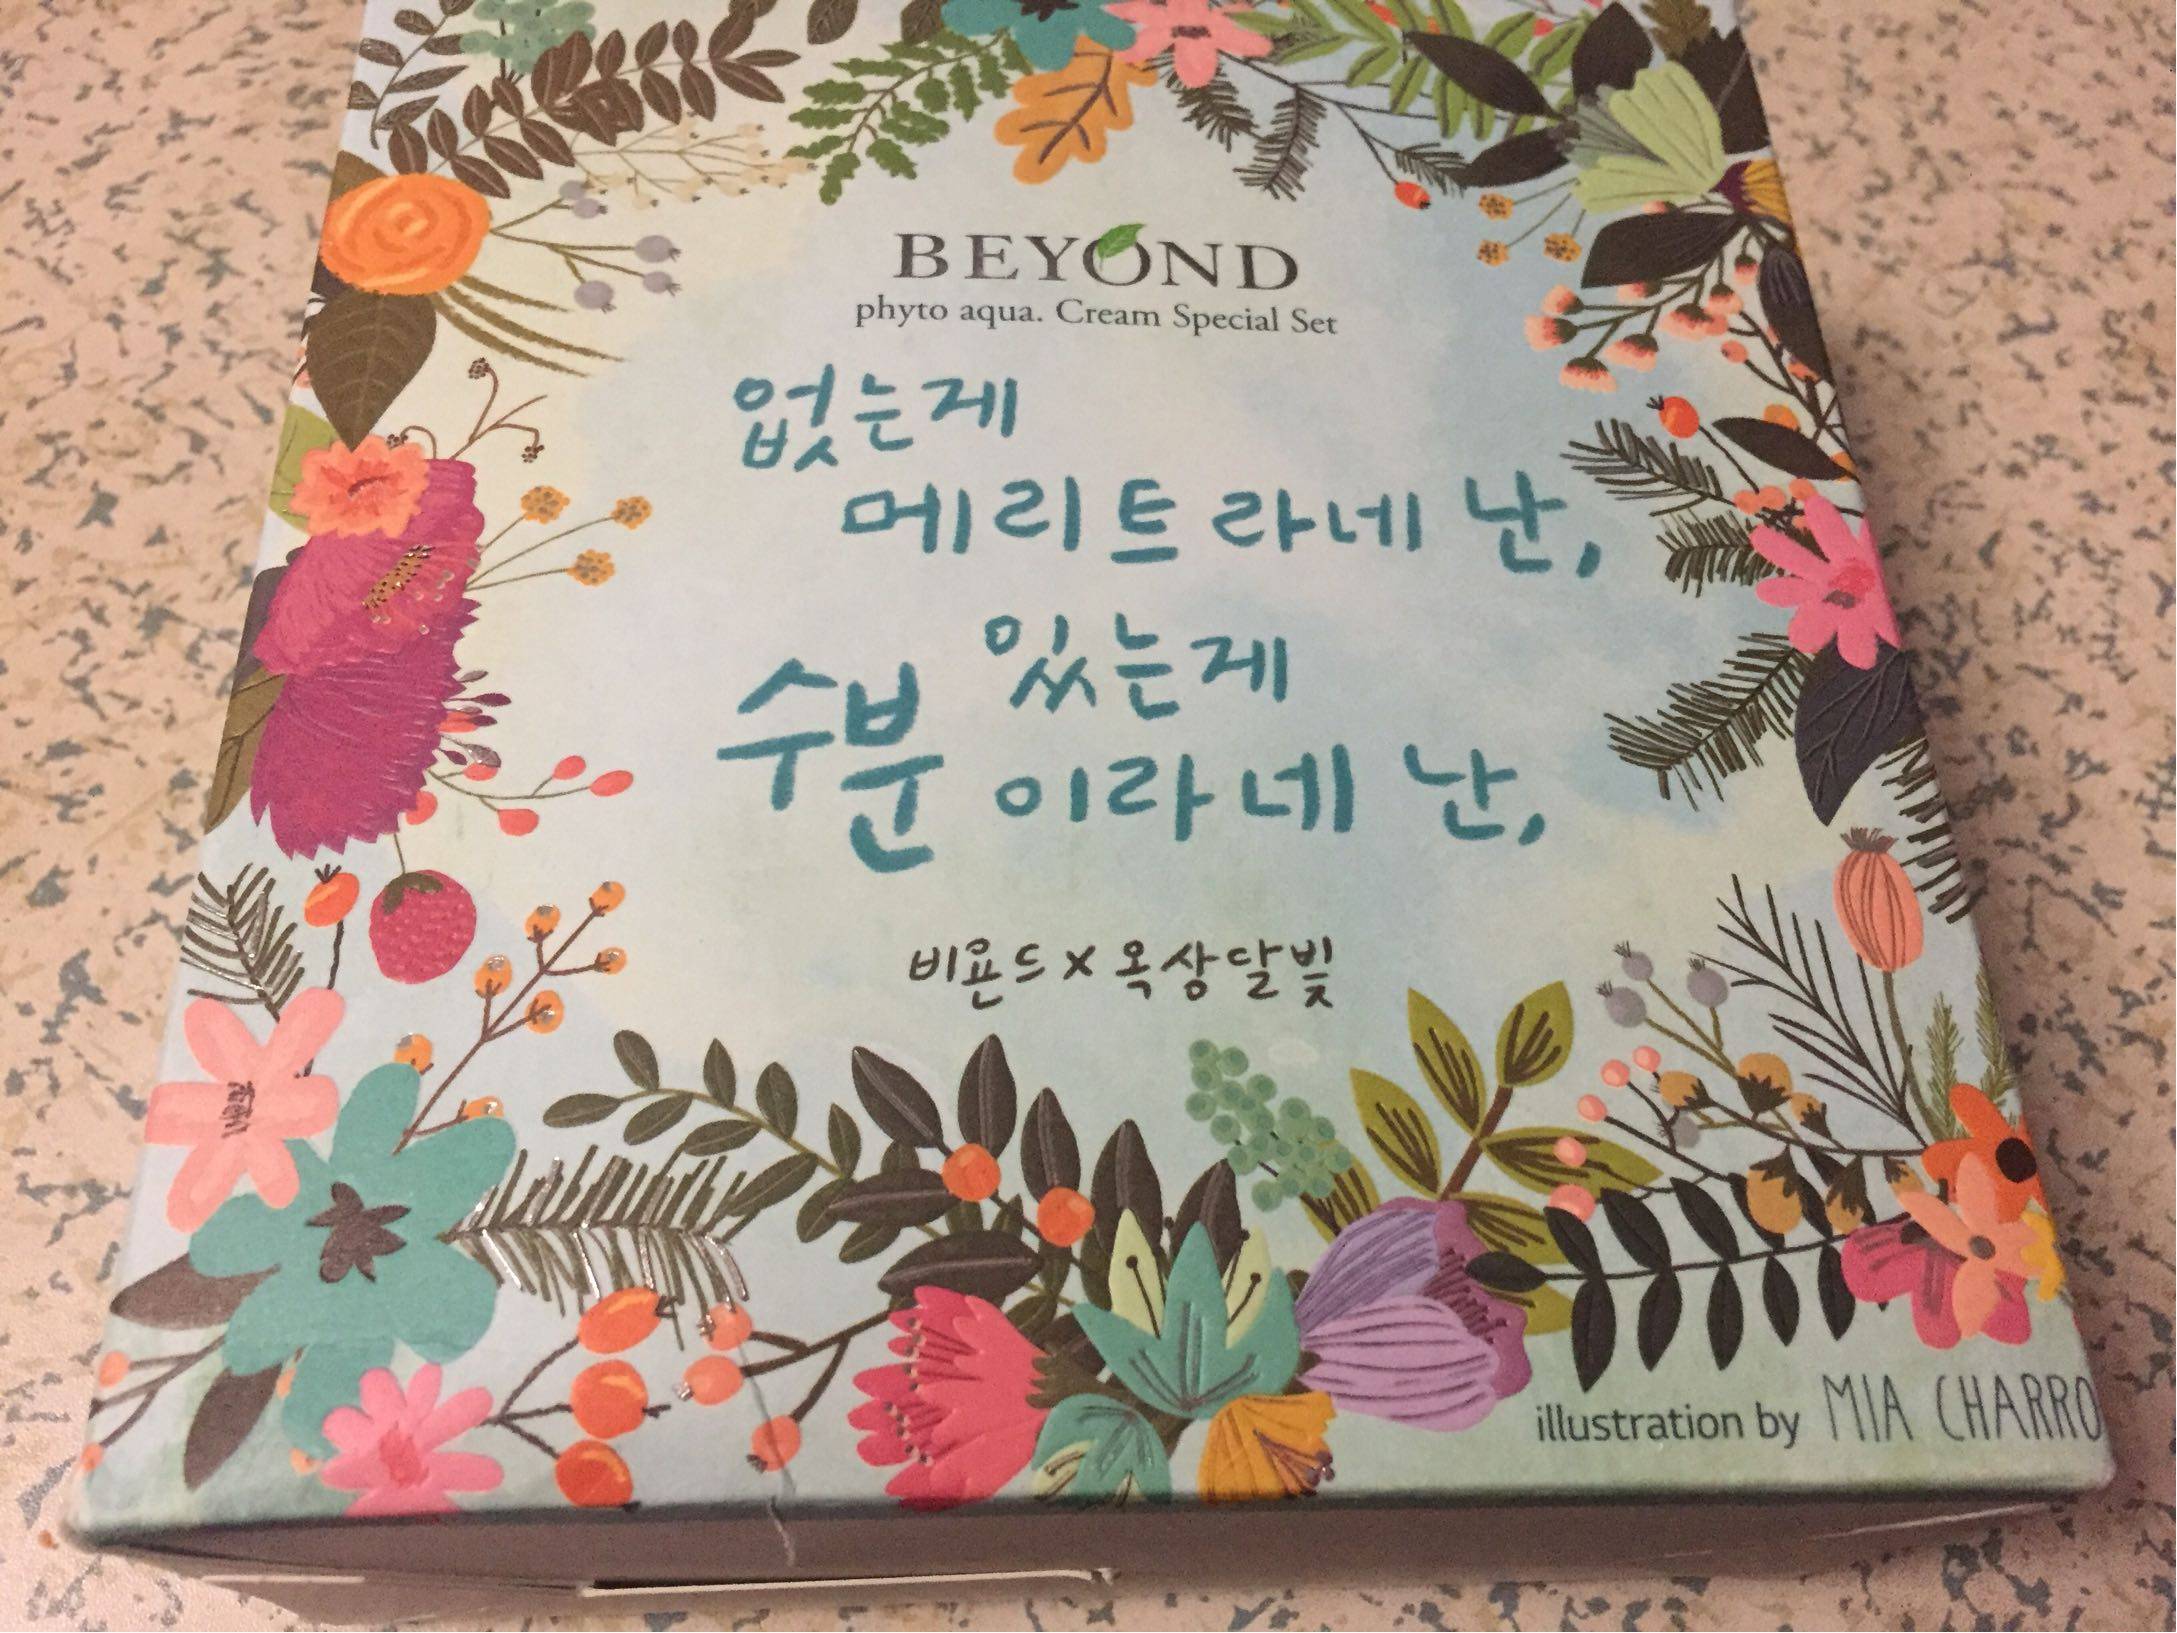 BEYOND
phyto aqua. Cream Special Set
없는게
메리트라네 난,
있는게
수분이라네 난,
비욘드 x 옥상달빛
illustration by MIA CHARRO